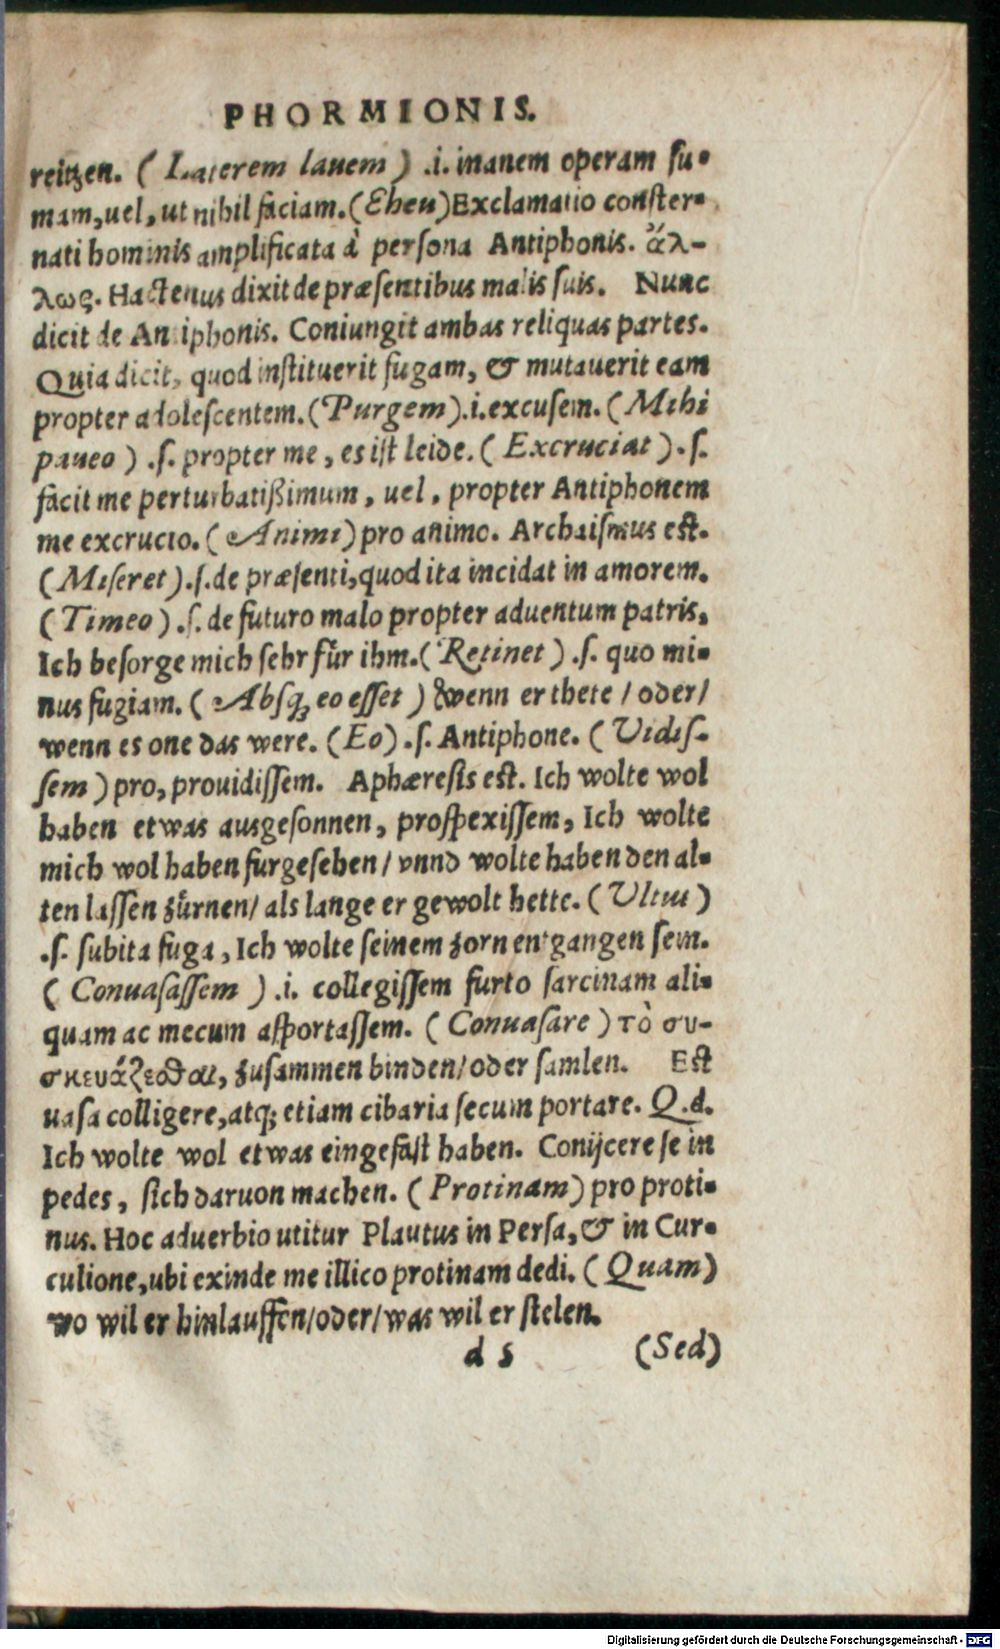 PHORMIONIS.
reitzen. ( Laterem lauem ) .i. inanem operam su-
mam, uel, ut nihil faciam. (Eheu) Exclamatio conster-
nati hominis amplificata à persona Antiphonis. ἄλ-
λως. Hactenus dixit de præsentibus malis suis. Nunc
dicit de Antiphonis. Coniungit ambas reliquas partes.
Quia dicit, quod instituerit fugam, & mutauerit eam
propter adolescentem. (Purgem) .i. excusem. (Mihi
paueo ) .s. propter me, es ist leide. ( Excruciat ) .s.
facit me perturbatißimum, uel, propter Antiphonem
me excrucio. ( Animi ) pro animo. Archaismus est.
(Miseret) .s. de præsenti, quod ita incidat in amorem.
( Timeo ) .s. de futuro malo propter aduentum patris,
Ich besorge mich sehr für ihm. ( Retinet ) .s. quo mi-
nus fugiam. ( Absq; eo esset ) wenn er thete / oder /
wenn es one das were. (Eo) .s. Antiphone. ( Vidis-
sem ) pro, prouidissem. Aphæresis est. Ich wolte wol
haben etwas ausgesonnen, prospexissem, Ich wolte
mich wol haben furgesehen / vnnd wolte haben den al-
ten lassen zürnen / als lange er gewolt hette. ( Vltus )
.s. subita fuga, Ich wolte seinem zorn entgangen sein.
( Conuasassem ) .i. collegissem furto sarcinam ali-
quam ac mecum asportassem. ( Conuasare ) τὸ συ-
σκευάζεσθαι, zusammen binden / oder samlen. Est
uasa colligere, atq; etiam cibaria secum portare. Q.d.
Ich wolte wol etwas eingefast haben. Conijcere se in
pedes, sich daruon machen. ( Protinam ) pro proti-
nus. Hoc aduerbio utitur Plautus in Persa, & in Cur-
culione, ubi exinde me illico protinam dedi. ( Quam )
wo wil er hinlauffen / oder / was wil er stelen.
d 5 (Sed)
Digitalisierung gefördert durch die Deutsche Forschungsgemeinschaft - DFG